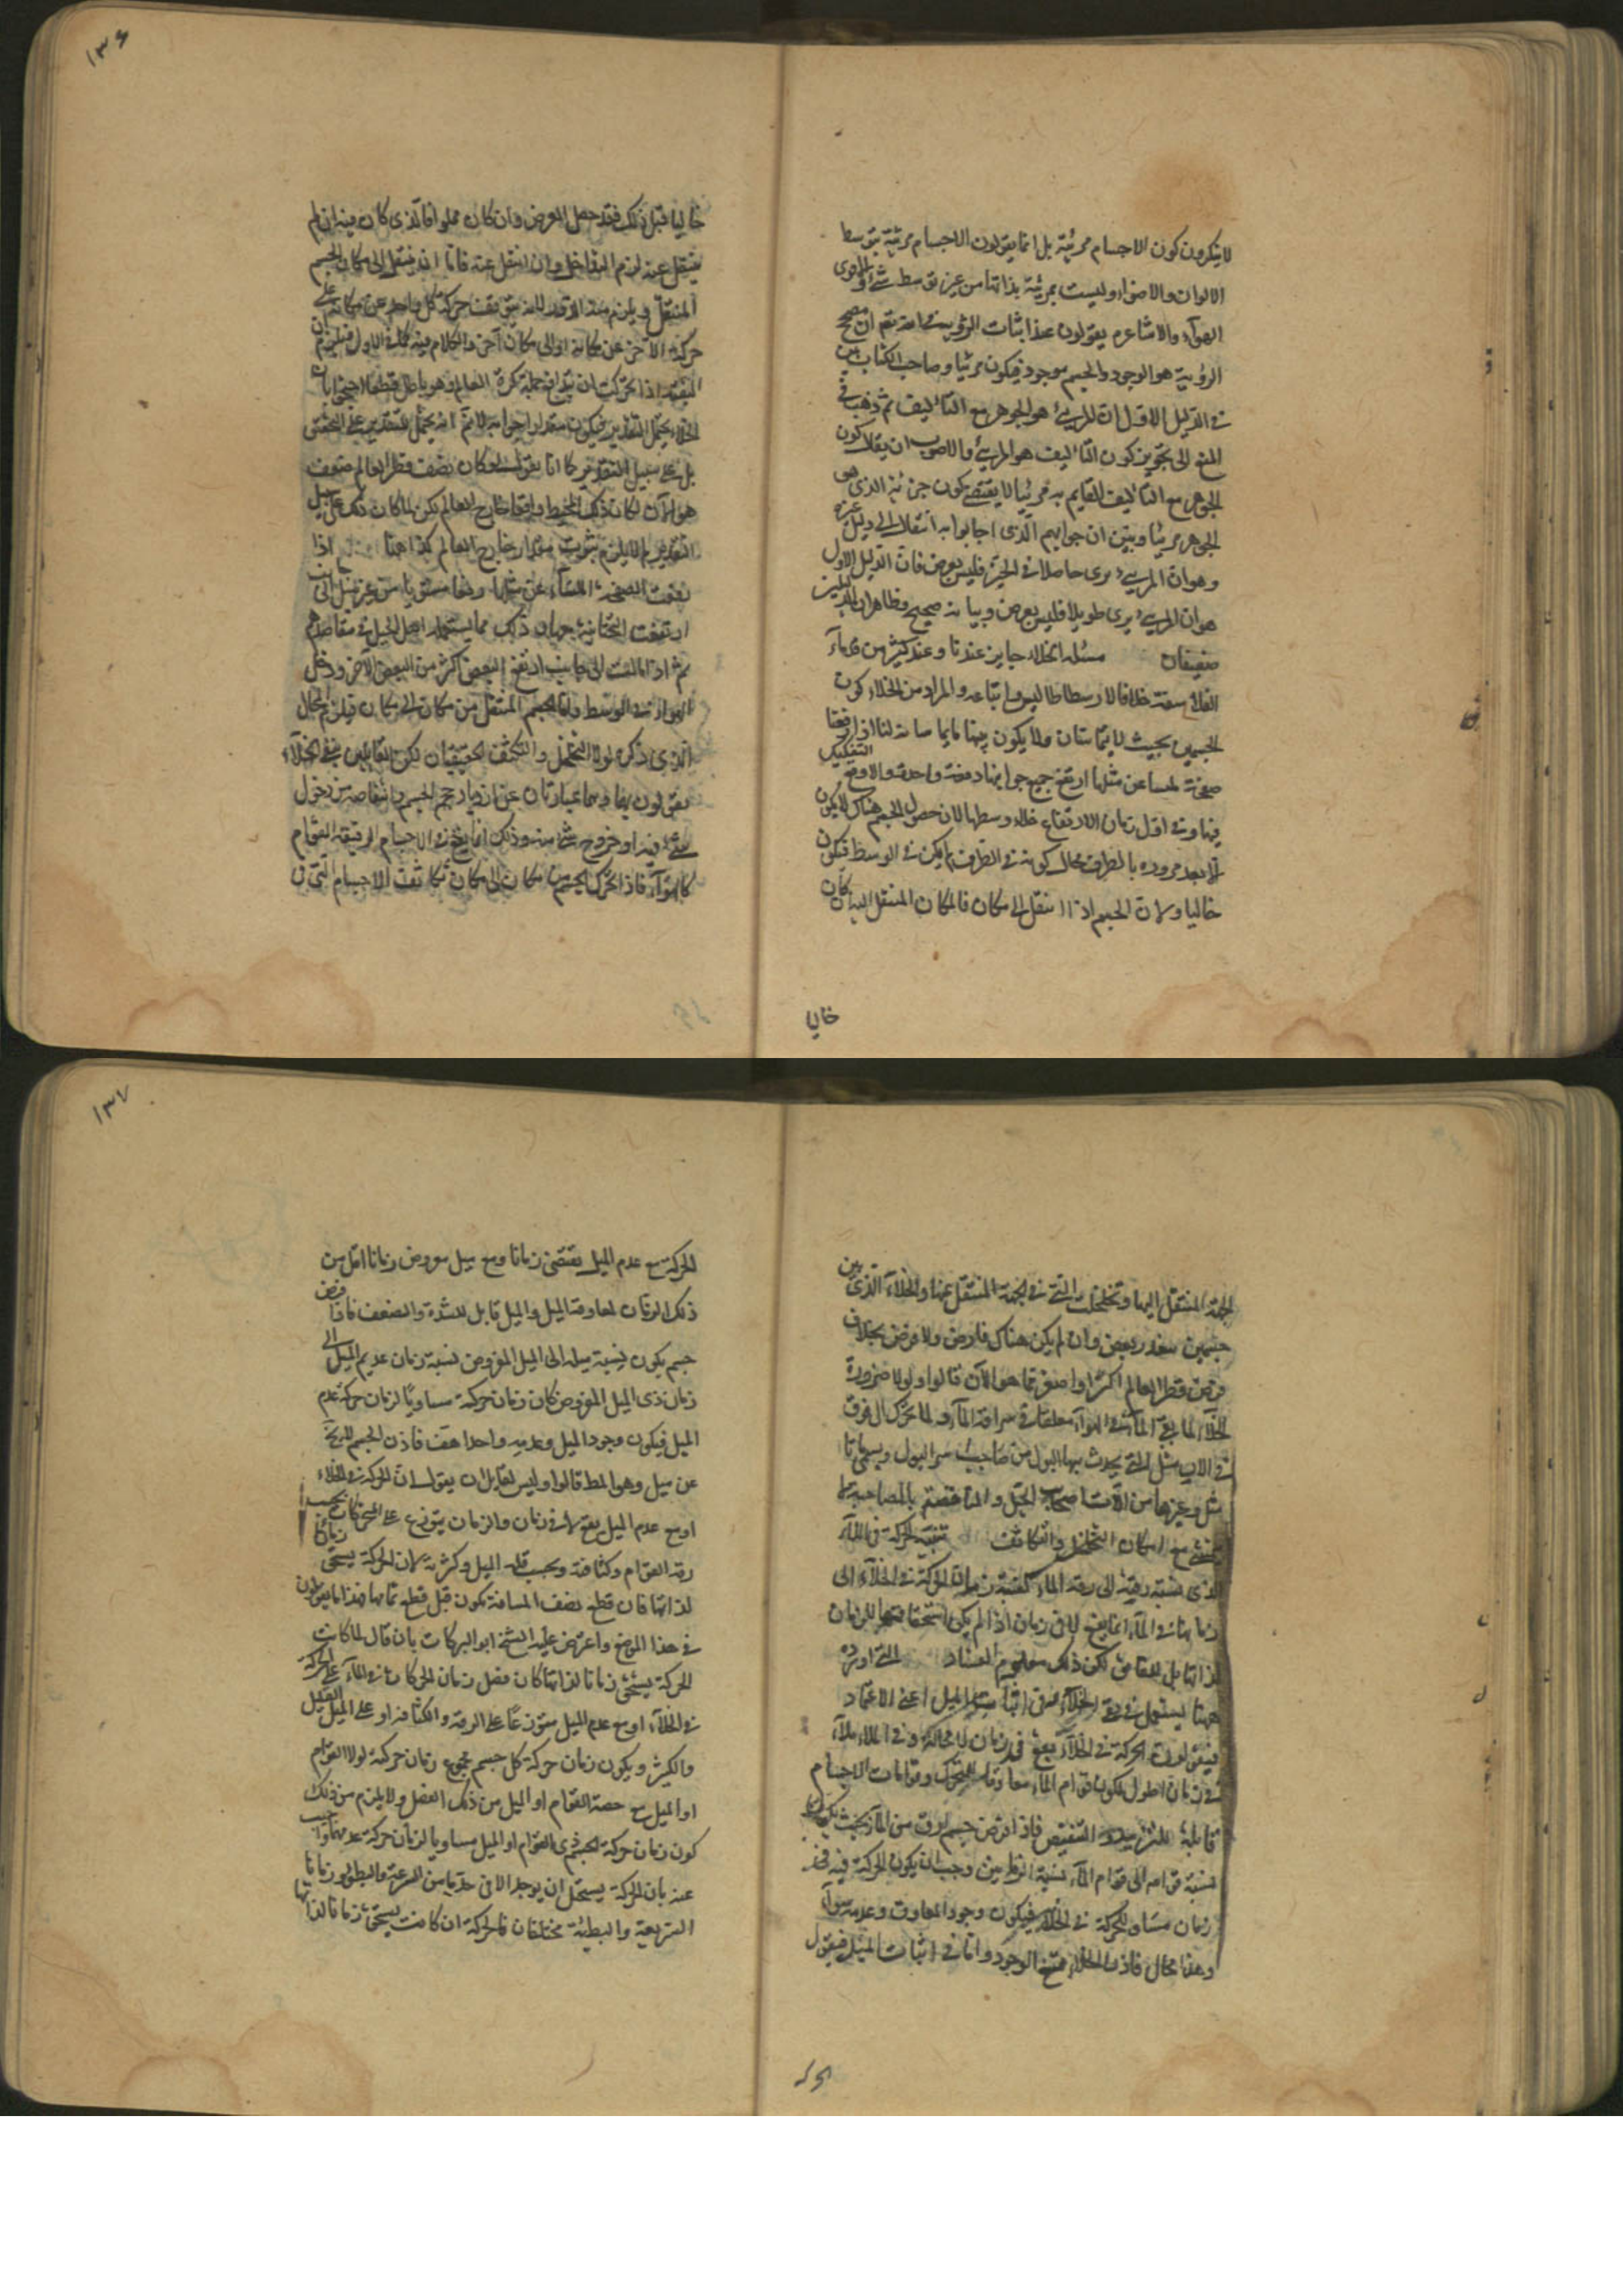 لا ينكرون كون الاجسام مرئية بل انما يقولون الاجسام مرئية بتوسط
الالوان والاضواء وليست بمرئية بذاتها من غير توسط شئ
الهوآء والاشاعرة يقولون عند اثبات الرؤية انّ مصحح
الرؤية هو الوجود والجسم موجود فيكون مرئيا وصاحب الكتاب بين
فى الدليل الاول ان المرئ هو الجوهر مع التأليف ثم ذهب فى
المنع الى تجويز كون التأليف هو المرئ والاصوب ان يقال كون
الجوهر مع التأليف القايم به مرئيا لا يقتضى كون جزئه الذى هو
الجوهر مرئيا وبين ان جوابهم الذى اجابوا به انتقال الى دليل غيره
وهو ان المرئ يرى حاصلا فى الحيز فليس بعرض فان الدليل الاول
هو ان المرئ يرى طويلا فليس بعرض وبيانه صحيح وظاهر ان الدليلين
ضعيفان مسئلة الخلاء جايز عندنا وعند كثير من قدماء
الفلاسفة خلافا لارسطاطاليس واتباعه والمراد من الخلاء كون
الجسمين بحيث لا يتماسان ولا يكون بينهما ما يماسانه لنا اذا رفعنا
صفحة ملسا عن مثلها ارتفع جميع جوانبها دفعة واحدة والا وقع التفكيك
فيها وفى اول زمان الارتفاع خلا وسطها لان حصول الجسم هناك لا يكون
الا بعد مروره بالطرف وحال كونه فى الطرف لم يكن فى الوسط فيكون
خاليا ولان الجسم اذا انتقل الى مكان فالمكان المنتقل اليه ان كان
خاليا
١٣۶
خاليا قبل ذلك فقد حصل الغرض وان كان مملوا فالذى كان فيه ان لم
ينتقل عنه لزم التداخل وان انتقل عنه فاما ان ينتقل الى مكان الجسم
المنتقل ويلزم منه الدور لانه يتوقف حركة كل واحد عن مكانه على
حركة الآخر عن مكانه او الى مكان آخر والكلام فيه كما فى الاول فيلزم ان
البقة اذا تحركت ان يتدافع جملة كرة العالم وهو باطل قطعا احتجوا بان
الخلاء يحتمل التقدير فيكون مقدارا جوابه لا نم انه يحتمل التقدير على التحقيق
بل على سبيل التقدير كما انا نقول لو كان نصف قطر العالم ضعف
هو الآن لكان ذلك المحيط واقعا خارج العالم لكن لما كان ذلك على سبيل
التقدير لم يلزم ثبوت مقدار خارج العالم كذا هنا اذا
رفعت الصفحة الملسآء عن مثلها رفعا مستويا من غير ميل الى جانب
ارتفعت التحتانية وذلك مما يستعمله اهل الحيل فى مقاصدهم
ثم اذا مالت الى جانب ارتفع البعض اكثر من البعض الآخر ودخل
الهواء فى الوسط واما الجسم المنتقل من مكان الى مكان فيلزم المحال
الذى ذكره لولا التخلخل والتكاثف الحقيقيان لكن القايلين بنفى الخلآء
يقولون بهما وهما عبارتان عن ازدياد حجم الجسم وانتقاصه من دخول
شئ فيه او خروج شئ منه وذلك انما يقع فى الاجسام الرقيقة القوام
كالهوآء فاذا تحرك الجسم من مكان الى مكان تكاثفت الاجسام التى فى
الجهة المنتقل اليها وتخلخلت التى فى الجهة المنتقل عنها والخلآء الذى بين
جسمين مقدر بعض وان لم يكن هناك فارض ولا فرض بخلاف
فرض قطر العالم اكبر او اصغر مما هو الآن قالوا ولولا ضرورة
الخلآء لما بقى المآء فى الهوآء معلقا فى سراقة المآء ولما تحرك الى فوق
فى الآلات مثل التى يجذب بها البول من صاحب اسر البول ويسمى
وغيرها من آلات اصحاب الحيل والمناقضة بالمصاحبة لا
مع امكان التخلخل والتكاثف نسبة الحركة فى الملآء
الذى نسبة رقته الى رقة الماء كنسبة زمان الحركة فى الخلآء الى
زمانها فى المآء انما يقع لا فى زمان اذا لم يكن استحقاقها للزمان
لذاتها بل للعائق لكن ذلك معلوم الفساد التى اورده
ههنا يستعمل فى نفى الخلآء وفى اثبات الميل اعنى الاعتماد
فيقولون الحركة فى الخلآء يقع فى زمان لا محالة وفى الملاء ملآء
فى زمان اطول لكون قوام الماء معاوقا للتحرك وقوامات الاجسام
قابلة للتزييد والتنقيص فاذا فرض جسم ارق من المآء بحيث يكون
نسبة قوامه الى قوام المآء نسبة الزمانين وجب ان يكون الحركة فيه فى
زمان مساو للحركة فى الخلآء فيكون وجود المعاوق وعدمه سوآء
وهذا محال فاذن الخلاء ممتنع الوجود واما فى اثبات الميل فيقول
الحركة
١٣٧
الحركة مع عدم الميل يقتضى زمانا ومع ميل مفروض زمانا اقل من
ذلك الزمان لمعاوقة الميل والميل قابل للشدة والضعف فاذا فرض
جسم يكون نسبة ميله الى الميل المفروض نسبة زمان عديم الميل الى
زمان ذى الميل المفروض كان زمان حركته مساويا لزمان حركة عدم
الميل فيكون وجود الميل وعدمه واحدا هف فاذن الجسم لا يخ
عن ميل وهو المط قالوا وليس لقايل ان يقول ان الحركة فى الخلاء
او مع عدم الميل يقع لا فى زمان والزمان يتوزع على الحركات بحسب
رقة القوام وكثافته وبحسب قلة الميل وكثرته لان الحركة يستحق زمانا
لذاتها فان قطع نصف المسافة يكون قبل قطع تمامها فهذا ما يقولون
فى هذا الموضع واعترض عليه الشيخ ابو البركات بان قال لما كانت
الحركة يستحق زمانا لذاتها كان فضل زمان الحركات فى المآء على الحركة
فى الخلآء او مع عدم الميل متوزعا على الرقة والكثافة او على الميل القليل
والكثير ويكون زمان حركة كل جسم مجموع زمان حركته لولا القوام
او الميل مع حصة القوام او الميل من ذلك الفضل ولا يلزم من ذلك
كون زمان حركة الجسم ذى القوام او الميل مساويا لزمان حركة عدمهما واجيب
عنه بان الحركة يستحيل ان يوجد الا فى حد ما من السرعة والبطؤ وزمانا
السريعة والبطيئة مختلفان فالحركة ان كانت يستحق زمانا لذاتها